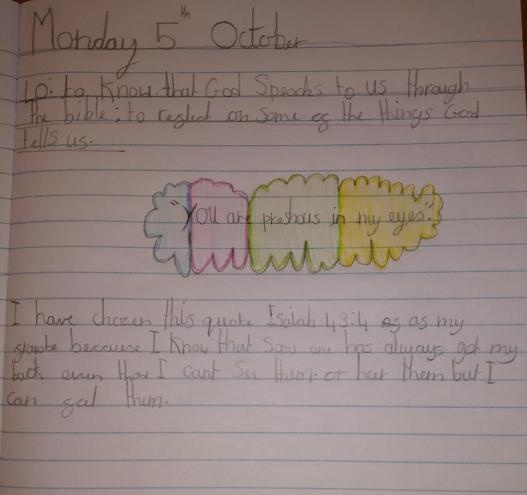 Monday 5th October
LO: to know that God Speacks to us through
the bible; to reflect on some of the things God
tells us.
"You are preshous in my eyes."
I have chozen this quote Isaiah 43:4 as as my
because I know that Some one has always got my
back even thow I cant See them or hear them but I
can feel them.